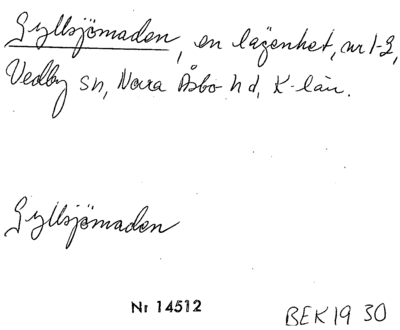 Gyllsjömaden, en lägenhet, nr 1-2,
Vedby sn, Norra Åsbo hd, K-län.
Gyllsjömaden
Nr 14512
BEK 19 30